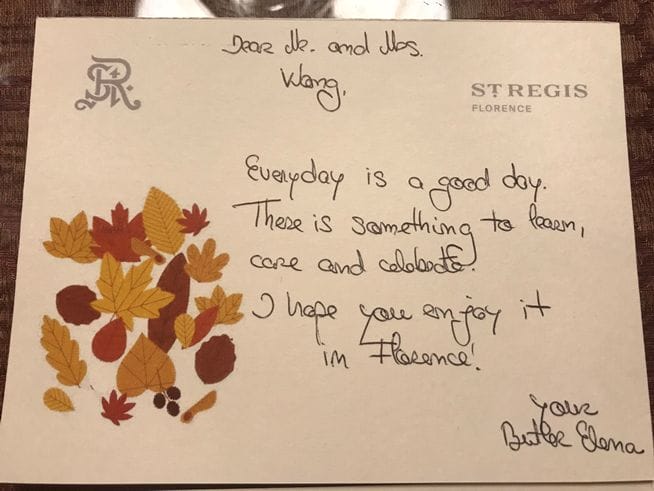 Dear Mr. and Mrs.
Wang,
ST REGIS
FLORENCE
Everyday is a good day.
There is something to learn,
care and celebrate.
I hope you enjoy it
in Florence!
your
Butler Elena